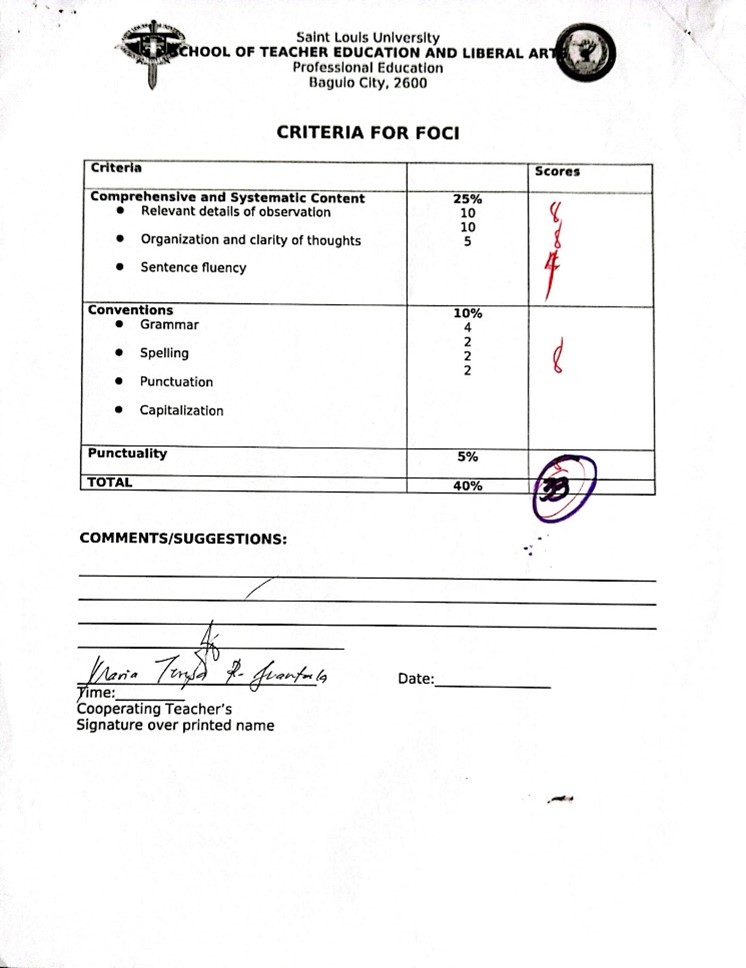 Saint Louis University
SCHOOL OF TEACHER EDUCATION AND LIBERAL ARTS
Professional Education
Baguio City, 2600
CRITERIA FOR FOCI
Criteria Scores
Comprehensive and Systematic Content 25%
● Relevant details of observation 10 8
10
● Organization and clarity of thoughts 5 8
● Sentence fluency 4
Conventions 10%
● Grammar 4
2
● Spelling 2 8
2
● Punctuation
● Capitalization
Punctuality 5% 5
TOTAL 40% 33
COMMENTS/SUGGESTIONS:
Maria Teresa R.
Date:
Time:
Cooperating Teacher's
Signature over printed name